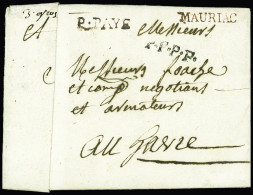 P.PAYÉ
MAURIAC
Messieurs
P.P.P.P.
Messieurs foache
et comp negotians
et armateurs
au havre